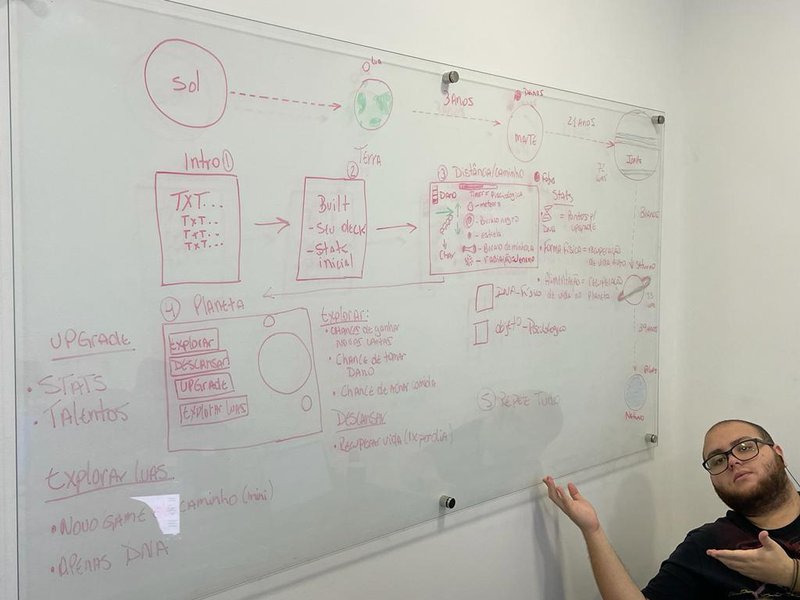 Sol
Lua
3 ANOS
MARTE
21 ANOS
72 LUAS
Terra
Intro ①
TXT...
TXT..
TXT..
TXT...
②
Built
- Seu deck
- Stats inicial
③ Distância/caminho
DANO
Timer = Psicologica
= meteoro
= Buraco negro
= estrela
= Buraco de minhoca
= radiação/veneno
Char
Stats
DNA = Pontos p/ upgrade
• Forma física = recuperação
de vida
• Alimentação = recuperação
de vida no planeta
DNA - Físico
objeto - Psicologico
④ Planeta
EXPLORAR
DESCANSAR
UPGRADE
EXPLORAR LUAS
Explorar:
• Chances de ganhar
novas cartas
• Chance de tomar
DANO
• Chance de achar comida
DESCANSAR
• Recuperar vida (1x por dia)
⑤ REPETE
UPGRADE
• STATS
• Talentos
Explorar LUAS
• Novo Game
caminho (mini)
• APENAS DNA